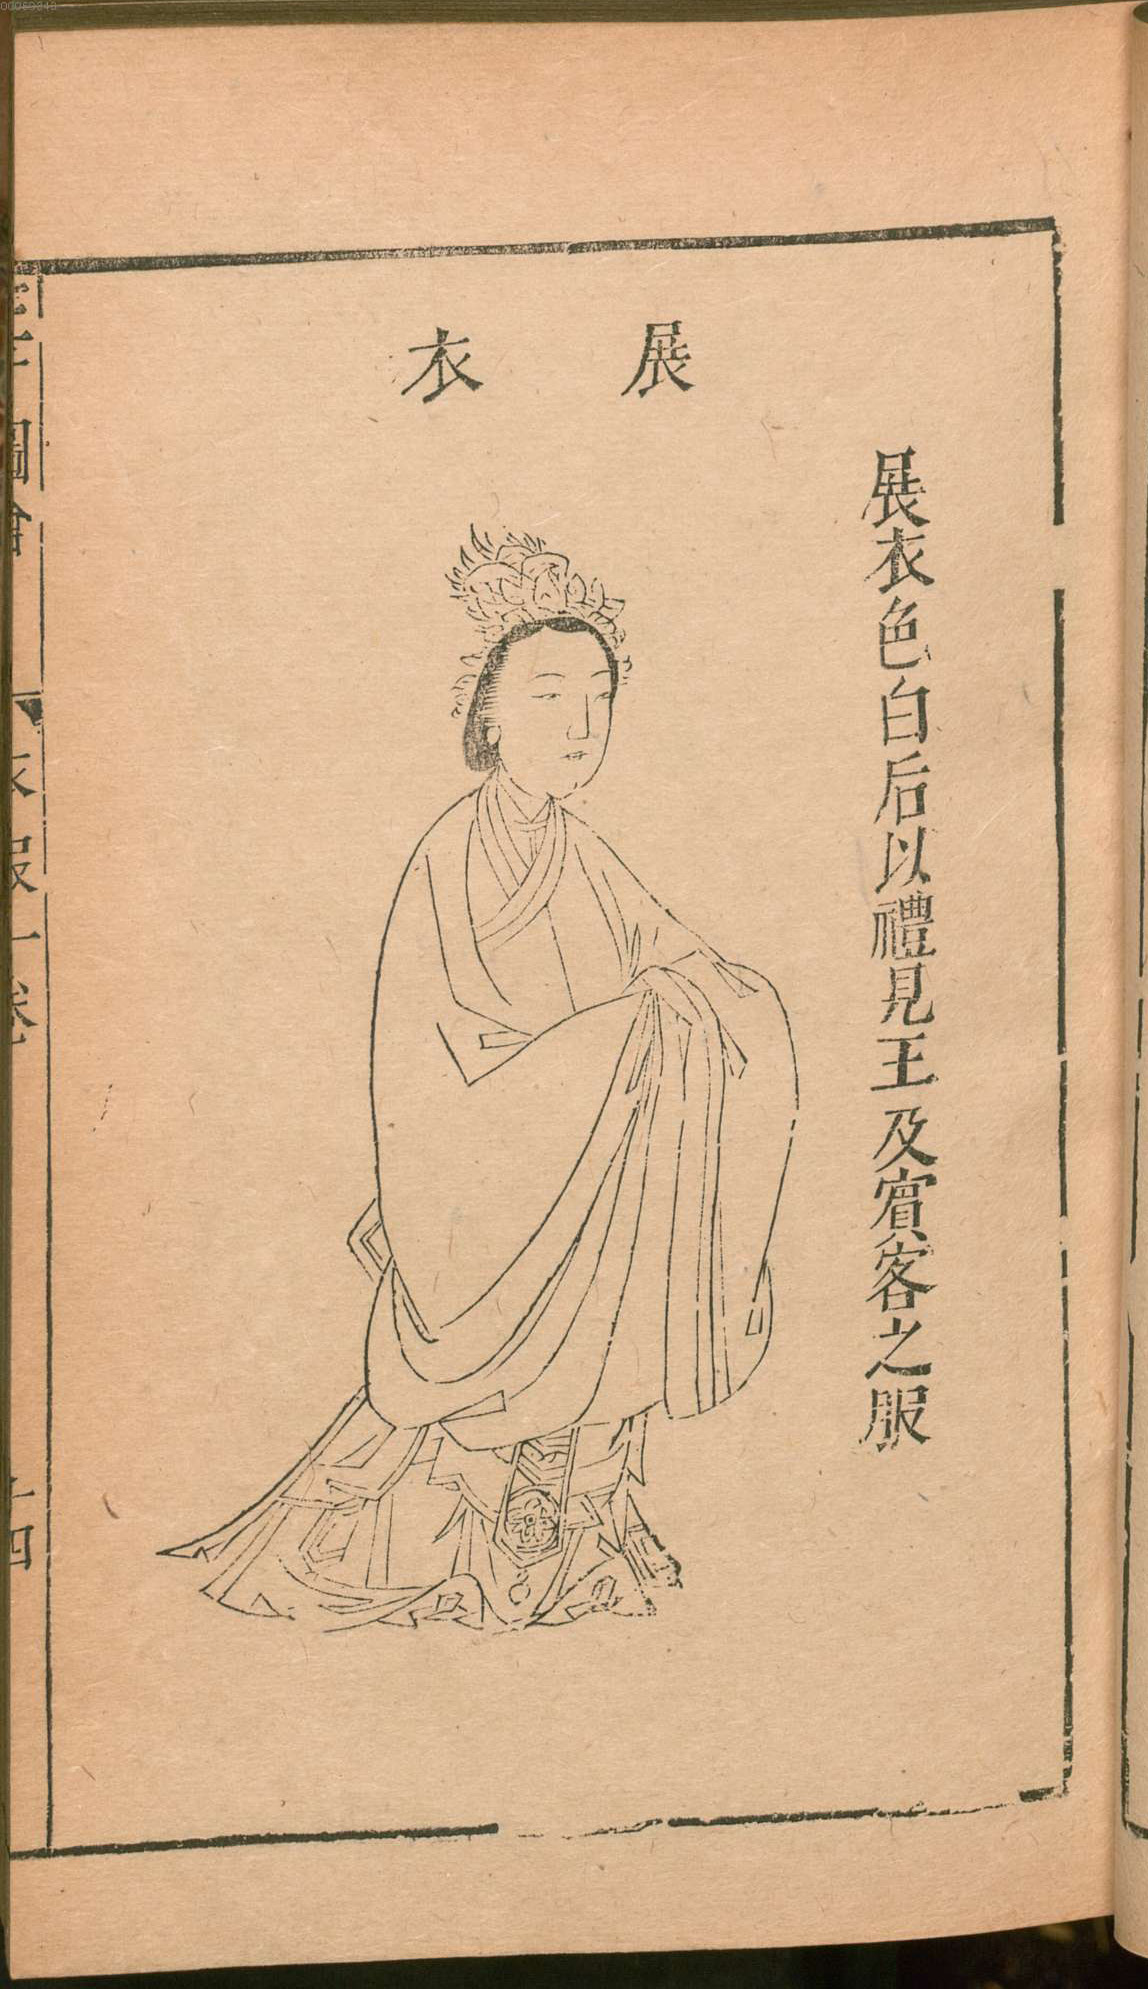 展衣
展衣色白后以禮見王及賓客之服
圖會
衣服一卷
十四
00069840